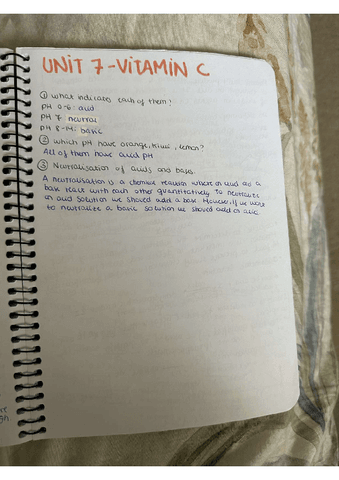 UNIT 7-VITAMIN C
① What indicates each of them?
pH 0-6: acid
pH 7: neutral
pH 8-14: basic
② Which pH have orange, kiwi, lemon?
All of them have acid pH
③ Neutralisation of acids and bases.
A neutralisation is a chemical reaction where an acid and a
base react with each other quantitatively. To neutralize
an acid solution we should add a base. However, if we want
to neutralize a basic solution we should add an acid.